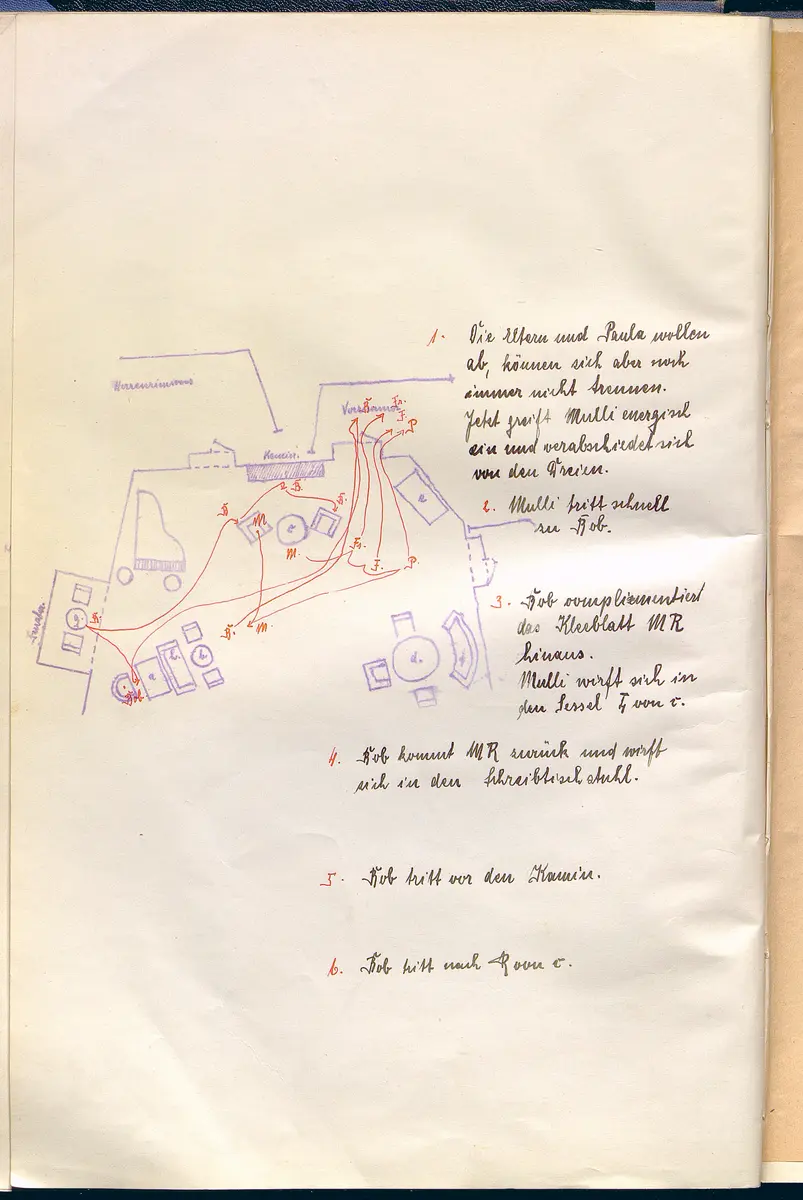 Herrenzimmer
Vorzimmer
Kamin.
Fenster.
B. Fr.
F.
P
B
B.
B.
M
M.
Fr.
F.
P.
B.
B. M.
Bob
a.
b.
c.
d.
e
f
g
h.
1. Die Eltern und Paula wollen
ab, können sich aber noch
immer nicht trennen.
Jetzt greift Mulli energisch
ein und verabschiedet sich
von den Dreien.
2. Mulli tritt schnell
zu Bob.
3. Bob complimentiert
das Kleeblatt MR
hinaus.
Mulli wirft sich in
den Sessel L von c.
4. Bob kommt MR zurück und wirft
sich in den Schreibtischstuhl.
5. Bob tritt vor den Kamin.
6. Bob tritt nach R von c.